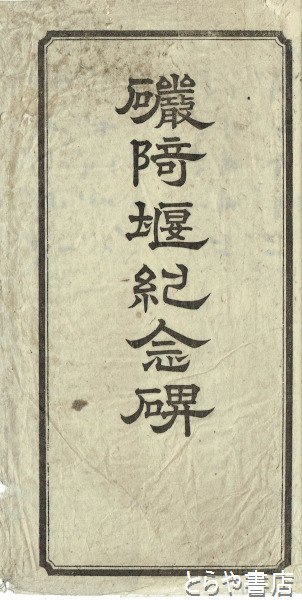 礹陭堰紀念碑
とらや書店